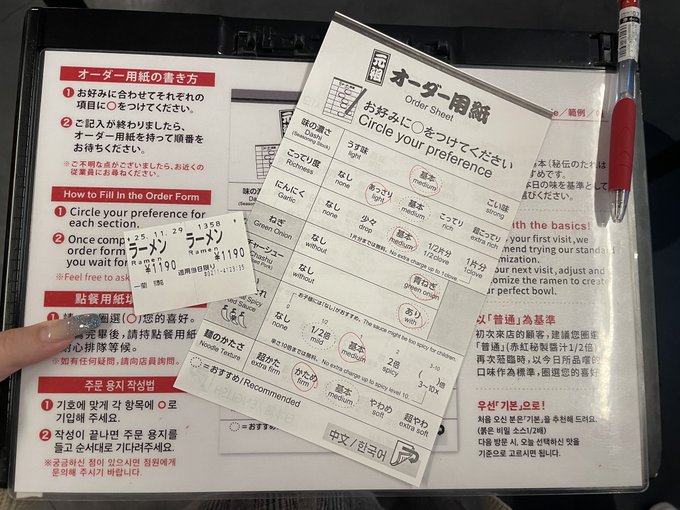 オーダー用紙の書き方
1 お好みに合わせてそれぞれの
項目に○をつけてください。
2 ご記入が終わりましたら、
オーダー用紙を持って順番を
お待ちください。
※ご不明な点がございましたら、お近くの
従業員にお尋ねください。
How to Fill In the Order Form
1 Circle your preference for
each section.
2 Once comp
order form
you wait fo
*Feel free to ask
點餐用紙填
1 請
圈選(○)您的喜好。
寫完畢後,請持點餐用紙
耐心排隊等候。
※如有任何疑問,請向店員詢問。
주문 용지 작성법
1 기호에 맞게 각 항목에 ○로
기입해 주세요.
2 작성이 끝나면 주문 용지를
들고 순서대로 기다려주세요.
※궁금하신 점이 있으시면 점원에게
문의해 주시기 바랍니다.
'25.11.29 1358
ラーメン ラーメン
Ramen Ramen
¥1190 ¥1190
適用当日限り
一蘭
元祖
オーダー用紙
Order Sheet
お好みに○をつけてください
Circle your preference
味の濃さ
Dashi
(Seasoning Stock)
うす味
light
基本
medium
こい味
strong
こってり度
Richness
なし
none
あっさり
light
基本
medium
こってり
rich
超こってり
extra rich
にんにく
Garlic
なし
none
少々
drop
基本
medium
1/2片分
1/2clove
1片分
1clove
1片分まで無料です。No extra charge up to 1 clove.
ねぎ
Green Onion
なし
without
青ねぎ
green onion
チャーシュー
なし
without
あり
with
The sauce might be too spicy for children.
0
なし
none
1/2
1/2倍
mild
基本
medium
2
2倍
spicy
3-10
3~10x
辛さ10倍まで無料です。No extra charge up to spicy level 10.
麺のかたさ
Noodle Texture
超かた
extra firm
かため
firm
基本
medium
やわめ
soft
超やわ
extra soft
=おすすめ/Recommended
中文/한국어
味の濃さ
/範例/
with the basics!
your first visit, we
mend trying our standard
mization.
ur next visit, adjust and
omize the ramen to create
r perfect bowl.
以「普通」為基準
初次來店的顧客,建議您圈選
「普通」(赤紅秘製醬汁1/2倍)
再次蒞臨時,以今日所品嚐的
口味作為標準,圈選您的喜好
우선「기본」으로!
처음 오신 분은「기본」을 추천해 드려요.
(붉은 비밀 소스1/2배)
다음 방문 시, 오늘 선택하신 맛을
기준으로 고르시면 됩니다.